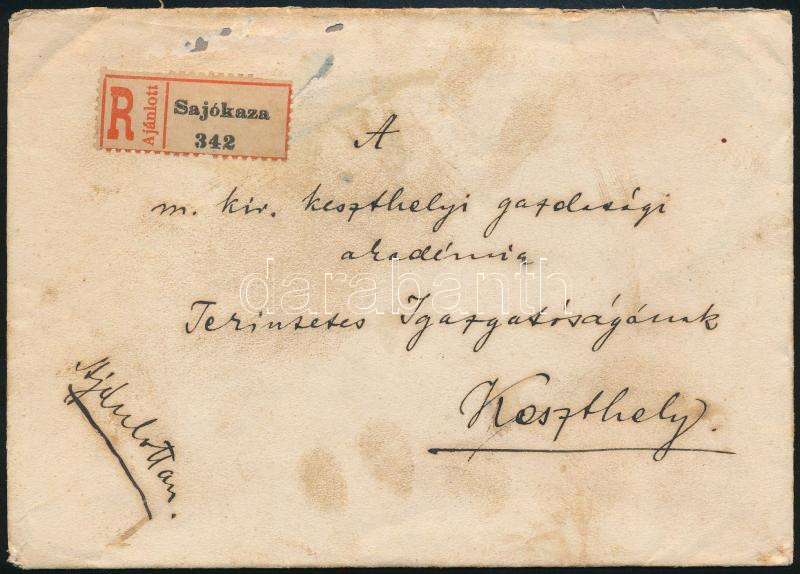 R Ajánlott Sajókaza
342
A
m. kir. keszthelyi gazdasági
akadémia
darabanth
Tekintetes Igazgatóságának
Keszthely.
Ajánlottan.